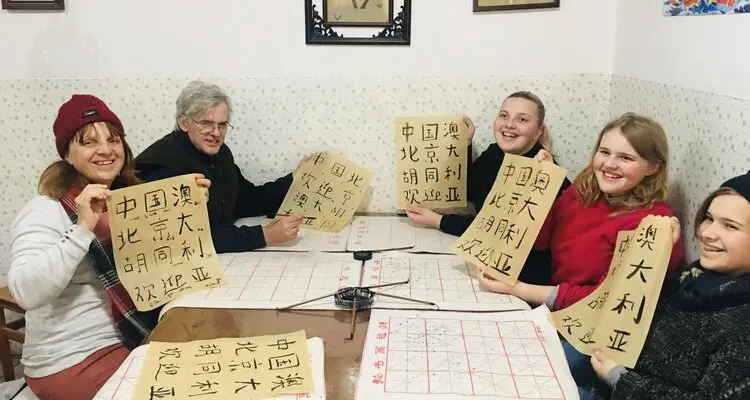 中国澳
北京大
胡同利
欢迎亚
中国北
欢迎胡
澳大
中国澳
北京大
胡同利
欢迎亚
中国澳
北京大
胡同利
欢迎亚
中澳
大
利
欢亚
中国澳
北京大
胡同利
欢迎亚